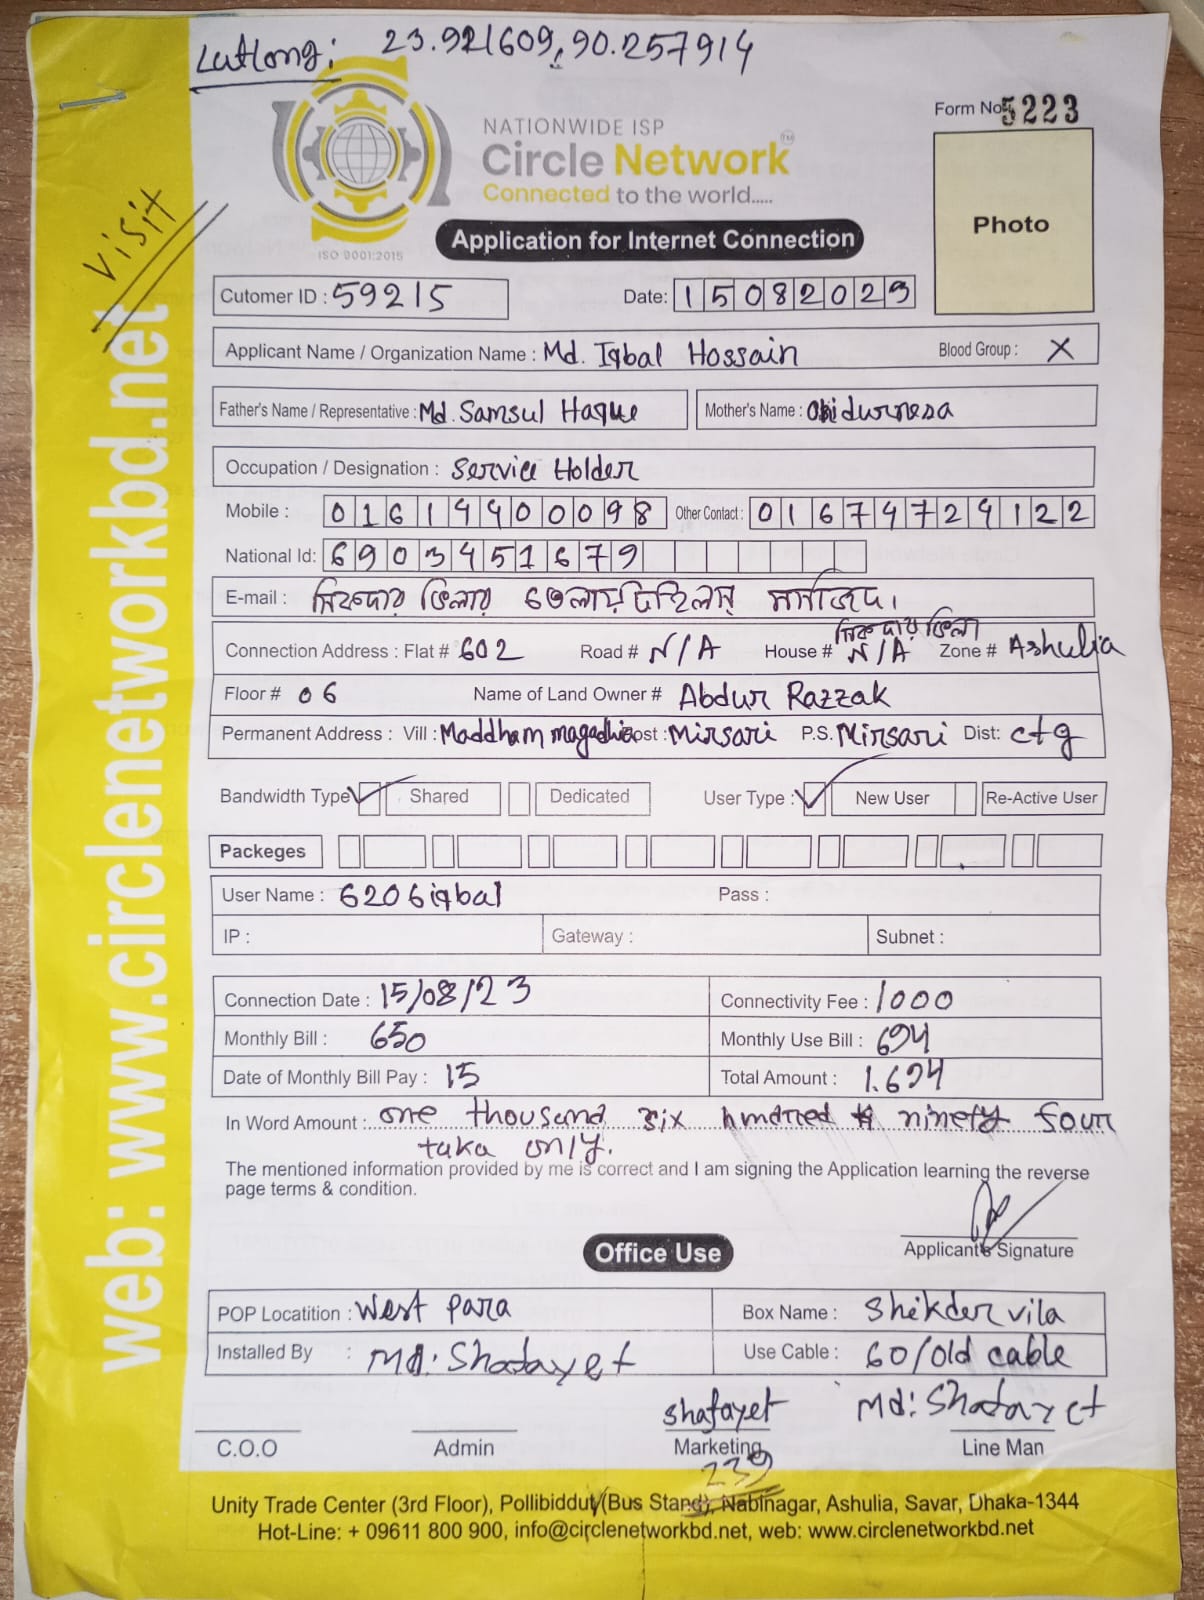 Latlong: 23.921609, 90.257914
Form No: 5223
NATIONWIDE ISP
Circle Network
TM
Connected to the world.....
ISO 9001:2015
Photo
Visit
web: www.circlenetworkbd.net
Application for Internet Connection
Cutomer ID : 59215 Date: 15082023
Applicant Name / Organization Name : Md. Iqbal Hossain Blood Group : X
Father's Name / Representative : Md. Samsul Haque Mother's Name : Obidurnesa
Occupation / Designation : Service Holder
Mobile : 01614400098 Other Contact : 01674724122
National Id: 6903451679
E-mail : সিকদার ভিলার
সিকদার ভিলা
Connection Address : Flat # 602 Road # N/A House # N/A Zone # Ashulia
Floor # 06 Name of Land Owner # Abdur Razzak
Permanent Address : Vill : Maddham Post : Mirsari P.S. Mirsari Dist: ctg
Bandwidth Type Shared Dedicated User Type : New User Re-Active User
Packeges
User Name : 6206iqbal Pass :
IP : Gateway : Subnet :
Connection Date : 15/08/23 Connectivity Fee : 1000
Monthly Bill : 650 Monthly Use Bill : 694
Date of Monthly Bill Pay : 15 Total Amount : 1.694
In Word Amount : one thousand six hundred ninety four
taka only.
The mentioned information provided by me is correct and I am signing the Application learning the reverse
page terms & condition.
Applicant's Signature
Office Use
POP Locatition : West para Box Name : Shikder vila
Installed By : Md: Shafayet Use Cable : 60/old cable
Shafayet Md: Shafayet
C.O.O Admin Marketing Line Man
239
Unity Trade Center (3rd Floor), Pollibiddut (Bus Stand), Nabinagar, Ashulia, Savar, Dhaka-1344
Hot-Line: + 09611 800 900, info@circlenetworkbd.net, web: www.circlenetworkbd.net